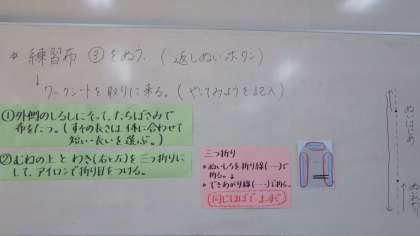 * 練習布 ③をぬう。(返しぬいボタン)
↓ワークシートを取りに来る。(やってみようを記入)
①外側のしるしにそって、たちばさみで
布をたつ。(すその長さは体に合わせて
短い・長いを選ぶ。)
②むねの上とわき(右と左)を三つ折りに
して、アイロンで折り目をつける。
三つ折り
・ぬいしろを折り線(----)で
折る。↓
・できあがり線(-----)で折る。